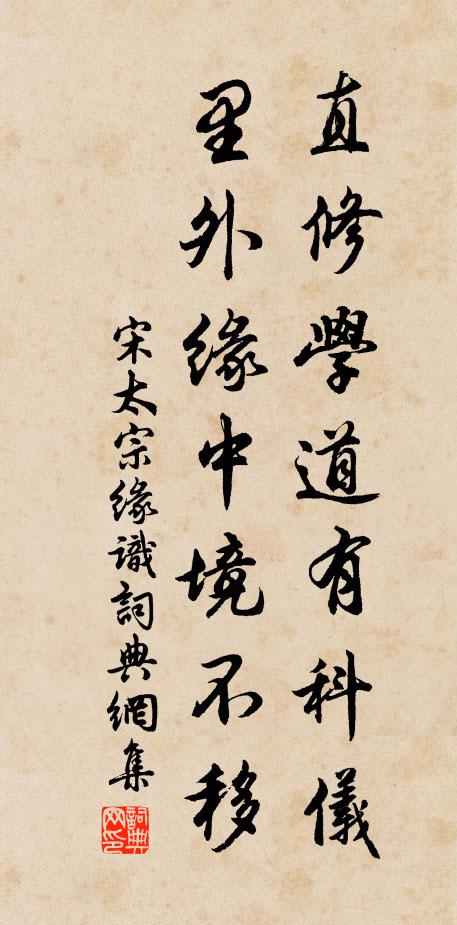 直修學道有科儀
里外緣中境不移
宋太宗緣識詞典網集
詞典网印